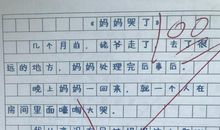 《妈妈哭了》
100
几个月前，姥爷走了，去了很
远的地方，妈妈处理完后事后，
晚上妈妈一回来，就一个人在
房间里面嚎啕大哭。